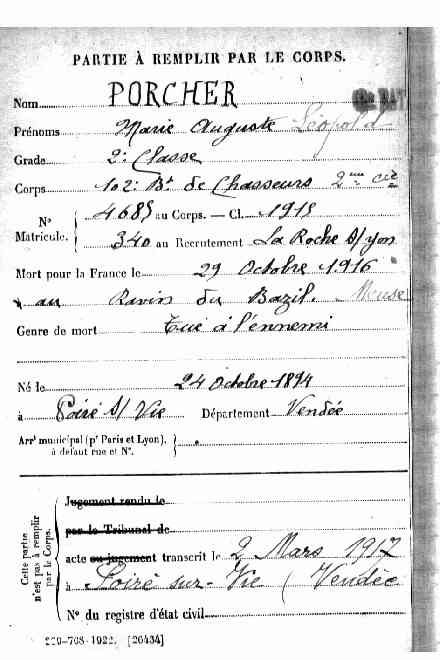 PARTIE À REMPLIR PAR LE CORPS.
Nom PORCHER
Prénoms Marie Auguste Léopold
Grade 2e Classe
Corps 102e Bt de Chasseurs 2me Cie
N° Matricule. 4685 au Corps. — Cl. 1915
340 au Recrutement La Roche S/yon
Mort pour la France le 29 Octobre 1916
au Ravin du Bazil. Meuse
Genre de mort Tué à l'ennemi
Né le 24 Octobre 1894
à Poiré S/ Vie Département Vendée
Arrt municipal (pr Paris et Lyon),
à défaut rue et N°.
Cette partie n'est pas à remplir par le Corps.
Jugement rendu le
par le Tribunal de
acte ou jugement transcrit le 2 Mars 1917
à Poiré sur-Vie (Vendée
N° du registre d'état civil
-708-1922. [26434]